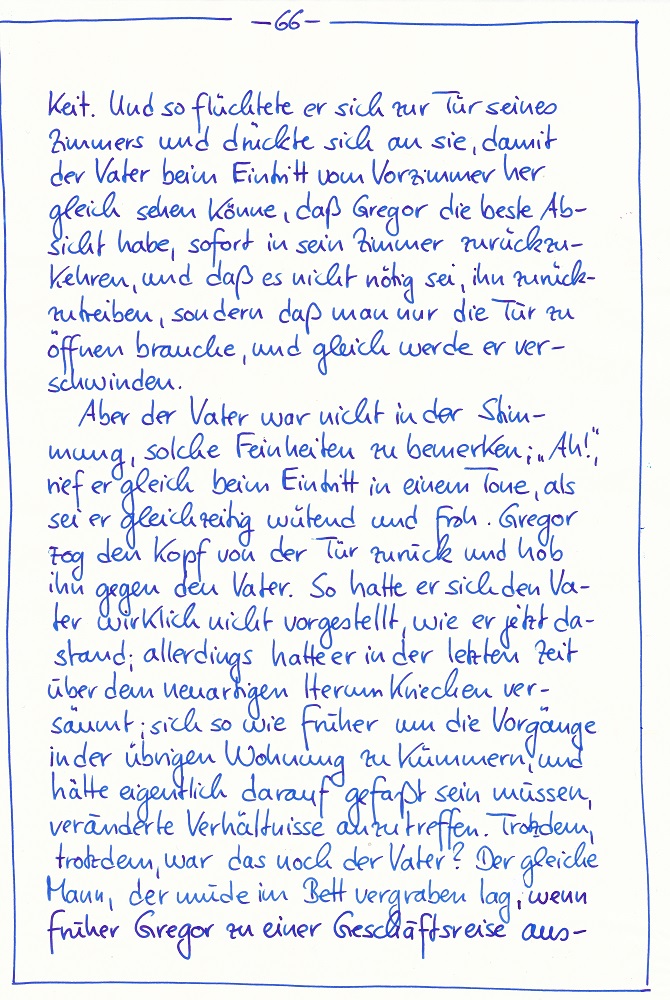 -66-
keit. Und so flüchtete er sich zur Tür seines
Zimmers und drückte sich an sie, damit
der Vater beim Eintritt vom Vorzimmer her
gleich sehen könne, daß Gregor die beste Ab-
sicht habe, sofort in sein Zimmer zurückzu-
kehren, und daß es nicht nötig sei, ihn zurück-
zutreiben, sondern daß man nur die Tür zu
öffnen brauche, und gleich werde er ver-
schwinden.
Aber der Vater war nicht in der Stim-
mung, solche Feinheiten zu bemerken; „Ah!“,
rief er gleich beim Eintritt in einem Tone, als
sei er gleichzeitig wütend und froh. Gregor
zog den Kopf von der Tür zurück und hob
ihn gegen den Vater. So hatte er sich den Va-
ter wirklich nicht vorgestellt, wie er jetzt da-
stand; allerdings hatte er in der letzten Zeit
über dem neuartigen Herumkriechen ver-
säumt; sich so wie früher um die Vorgänge
in der übrigen Wohnung zu kümmern, und
hätte eigentlich darauf gefaßt sein müssen,
veränderte Verhältnisse anzutreffen. Trotzdem,
trotzdem, war das noch der Vater? Der gleiche
Mann, der müde im Bett vergraben lag, wenn
früher Gregor zu einer Geschäftsreise aus-